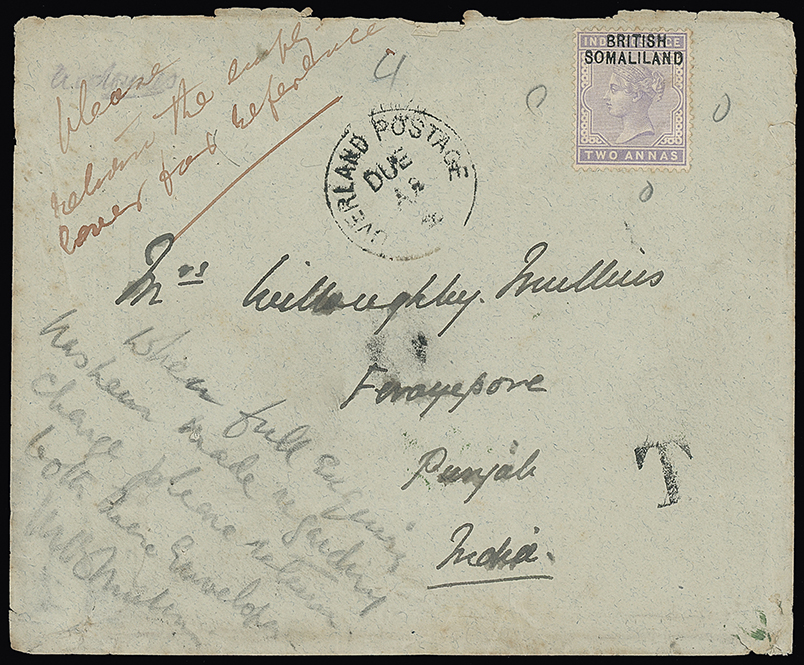 please
return the
cover for reference
BRITISH
SOMALILAND
TWO ANNAS
OVERLAND POSTAGE
DUE
Mrs Willoughby. Mullins
Ferozepore
Punjab
India.
T
When full enquiry
has been made regarding
charge please return
both these Envelopes